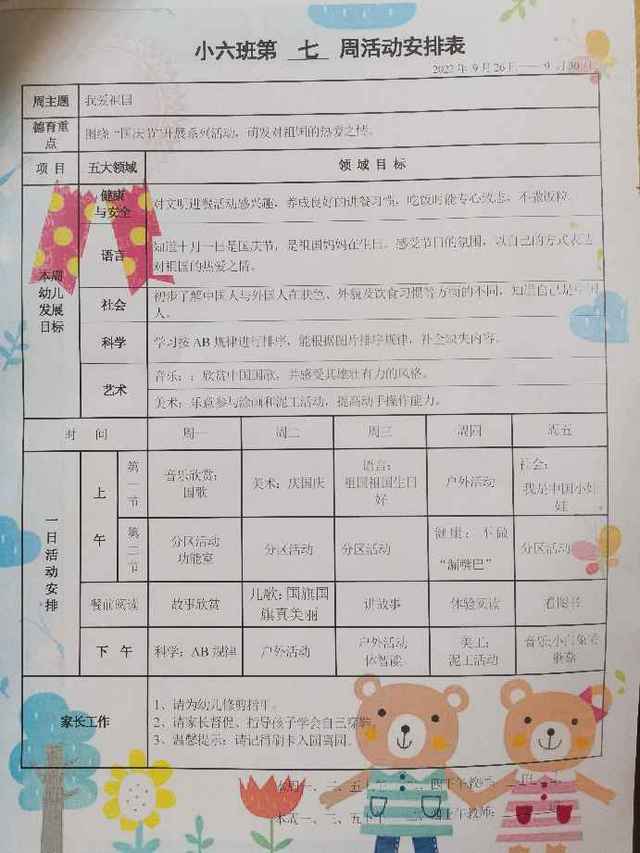 小六班第 七 周活动安排表
2022年9月26日——9月30日
周主题 我爱祖国
德育重点 围绕“国庆节”开展系列活动，萌发对祖国的热爱之情。
项目 五大领域 领域目标
本周幼儿发展目标
健康与安全 对文明进餐活动感兴趣，养成良好的进餐习惯，吃饭时能专心致志，不撒饭粒。
语言 知道十月一日是国庆节，是祖国妈妈在生日，感受节日的氛围，以自己的方式表达
对祖国的热爱之情。
社会 初步了解中国人与外国人在肤色、外貌及饮食习惯等方面的不同，知道自己是中国
人。
科学 学习按AB规律进行排序，能根据图片排序规律，补全缺失内容。
艺术 音乐：：欣赏中国国歌，并感受其雄壮有力的风格。
美术：乐意参与绘画和泥工活动，提高动手操作能力。
时间 周一 周二 周三 周四 周五
一日活动安排
上午
第一节 音乐欣赏：国歌 美术：庆国庆 语言：祖国祖国生日好 户外活动 社会：我是中国小娃娃
第二节 分区活动 功能室 分区活动 分区活动 健康：不做“漏嘴巴” 分区活动
餐前阅读 故事欣赏 儿歌：国旗国旗真美丽 讲故事 体验阅读 看图书
下午 科学：AB规律 户外活动 户外活动 体智能 美工：泥工活动 音乐：小白兔
家长工作
1、请为幼儿修剪指甲。
2、请家长督促、指导孩子学会自己穿
3、温馨提示：请记得刷卡入园离园。